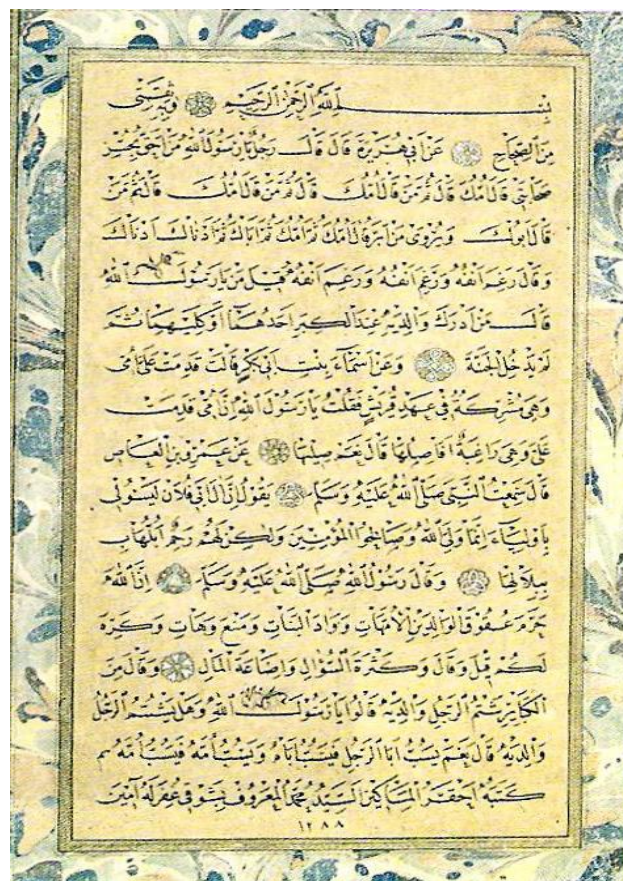 بِسْمِ اللّٰهِ الرَّحْمٰنِ الرَّحِيمِ وَبِهِ ثِقَتِي
مِنَ الصِّحَاحِ عَنْ اَبِي هُرَيْرَةَ قَالَ قَالَ رَجُلٌ يَارَسُولَ اللّٰهِ مَنْ اَحَقُّ بِحُسْنِ
صَحَابَتِي قَالَ اُمُّكَ قَالَ ثُمَّ مَنْ قَالَ اُمُّكَ قَالَ ثُمَّ مَنْ قَالَ اُمُّكَ قَالَ ثُمَّ مَنْ
قَالَ اَبُوكَ وَيُرْوٰى مَنْ اَبَرُّ قَالَ اُمَّكَ ثُمَّ اُمَّكَ ثُمَّ اَبَاكَ ثُمَّ اَدْنَاكَ اَدْنَاكَ
وَقَالَ رَغِمَ اَنْفُهُ وَرَغِمَ اَنْفُهُ وَرَغِمَ اَنْفُهُ قِيلَ مَنْ يَارَسُولَ اللّٰهِ
قَالَ مَنْ اَدْرَكَ وَالِدَيْهِ عِنْدَ الْكِبَرِ اَحَدَهُمَا اَوْ كِلَيْهِمَا ثُمَّ
لَمْ يَدْخُلِ الْجَنَّةَ وَعَنْ اَسْمَاءَ بِنْتِ اَبِي بَكْرٍ قَالَتْ قَدِمَتْ عَلَيَّ اُمِّي
وَهِيَ مُشْرِكَةٌ فِي عَهْدِ قُرَيْشٍ فَقُلْتُ يَارَسُولَ اللّٰهِ اِنَّ اُمِّي قَدِمَتْ
عَلَيَّ وَهِيَ رَاغِبَةٌ اَفَاَصِلُهَا قَالَ نَعَمْ صِلِيهَا عَنْ عَمْرِو بْنِ الْعَاصِ
قَالَ سَمِعْتُ النَّبِيَّ صَلَّى اللّٰهُ عَلَيْهِ وَسَلَّمَ يَقُولُ اِنَّ اٰلَ اَبِي فُلَانٍ لَيْسُوا لِي
بِاَوْلِيَاءَ اِنَّمَا وَلِيِّيَ اللّٰهُ وَصَالِحُ الْمُؤْمِنِينَ وَلٰكِنْ لَهُمْ رَحِمٌ اَبُلُّهَا
بِبِلَالِهَا وَقَالَ رَسُولُ اللّٰهِ صَلَّى اللّٰهُ عَلَيْهِ وَسَلَّمَ اِنَّ اللّٰهَ
حَرَّمَ عُقُوقَ الْوَالِدَيْنِ الْاُمَّهَاتِ وَوَأْدَ الْبَنَاتِ وَمَنْعَ وَهَاتِ وَكَرِهَ
لَكُمْ قِيلَ وَقَالَ وَكَثْرَةَ السُّؤَالِ وَاِضَاعَةَ الْمَالِ وَقَالَ مِنَ
الْكَبَائِرِ شَتْمُ الرَّجُلِ وَالِدَيْهِ قَالُوا يَارَسُولَ اللّٰهِ وَهَلْ يَشْتُمُ الرَّجُلُ
وَالِدَيْهِ قَالَ نَعَمْ يَسُبُّ اَبَا الرَّجُلِ فَيَسُبُّ اَبَاهُ وَيَسُبُّ اُمَّهُ فَيَسُبُّ اُمَّهُ
كَتَبَهُ اَحْقَرُ الْمَسَاكِينِ السَّيِّدُ مُحَمَّدُ الْمَعْرُوفُ بِشَوْقِي غُفِرَ لَهُ اٰمِينَ
١٢٨٨